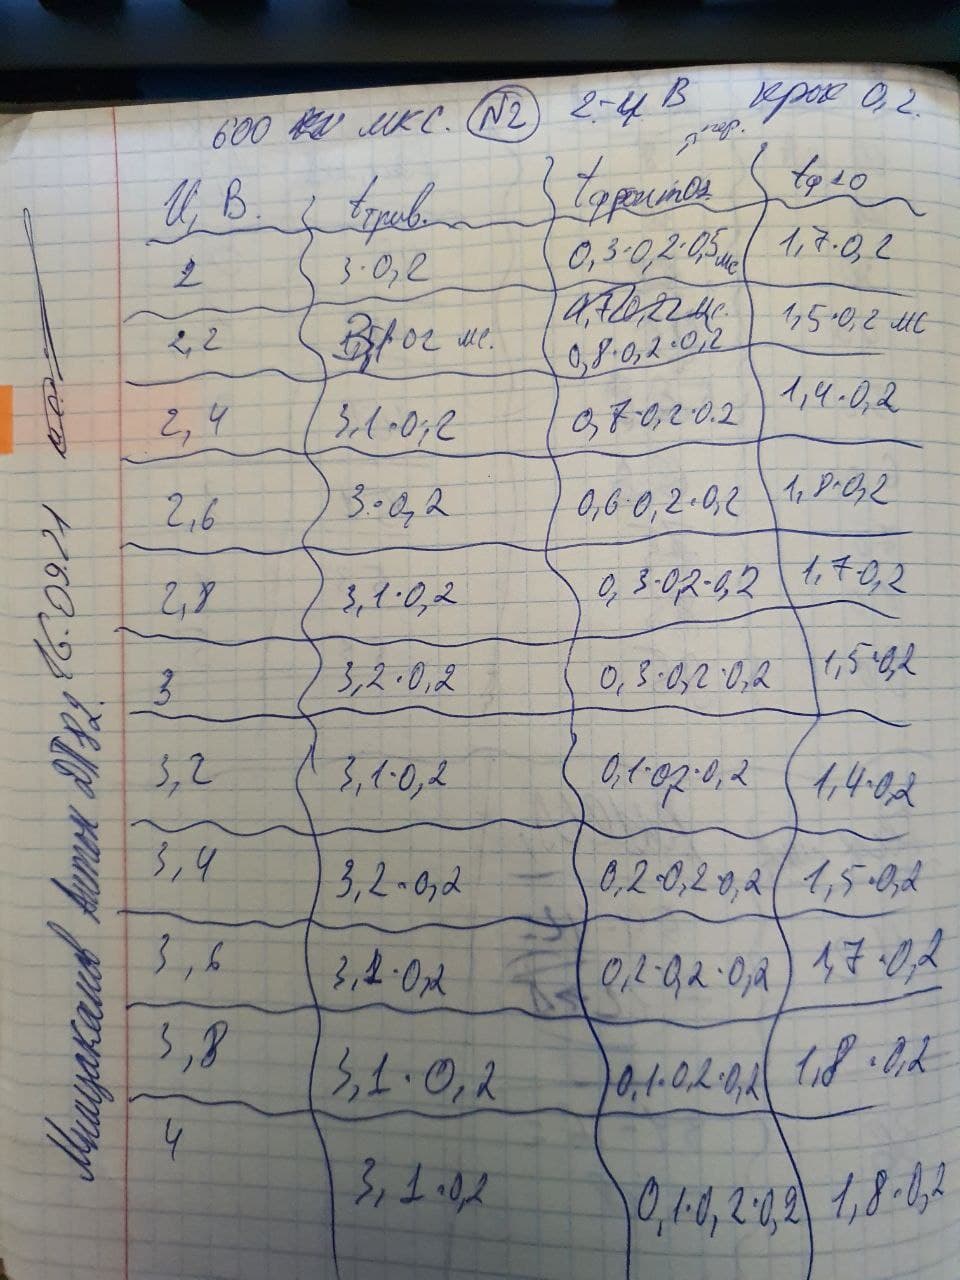 600 мкс. №2 2-4 В крок 0,2.
пер.
U, В. tтрив. tфронтов tф10
2 3·0,2 0,3·0,2·0,5мс 1,7·0,2
2,2 мс. 0,8·0,2·0,2 1,5·0,2 мс
2,4 3,1·0,2 0,7·0,2·0.2 1,4·0,2
2,6 3·0,2 0,6·0,2·0,2 1,8·0,2
2,8 3,1·0,2 0,3·0,2·0,2 1,7·0,2
3 3,2·0,2 0,3·0,2·0,2 1,5·0,2
3,2 3,1·0,2 0,1·0,2·0,2 1,4·0,2
3,4 3,2·0,2 0,2·0,2·0,2 1,5·0,2
3,6 3,1·0,2 0,2·0,2·0,2 1,7·0,2
3,8 3,1·0,2 0,1·0,2·0,2 1,8·0,2
4 3,1·0,2 0,1·0,2·0,2 1,8·0,2
Антон 16.09.21